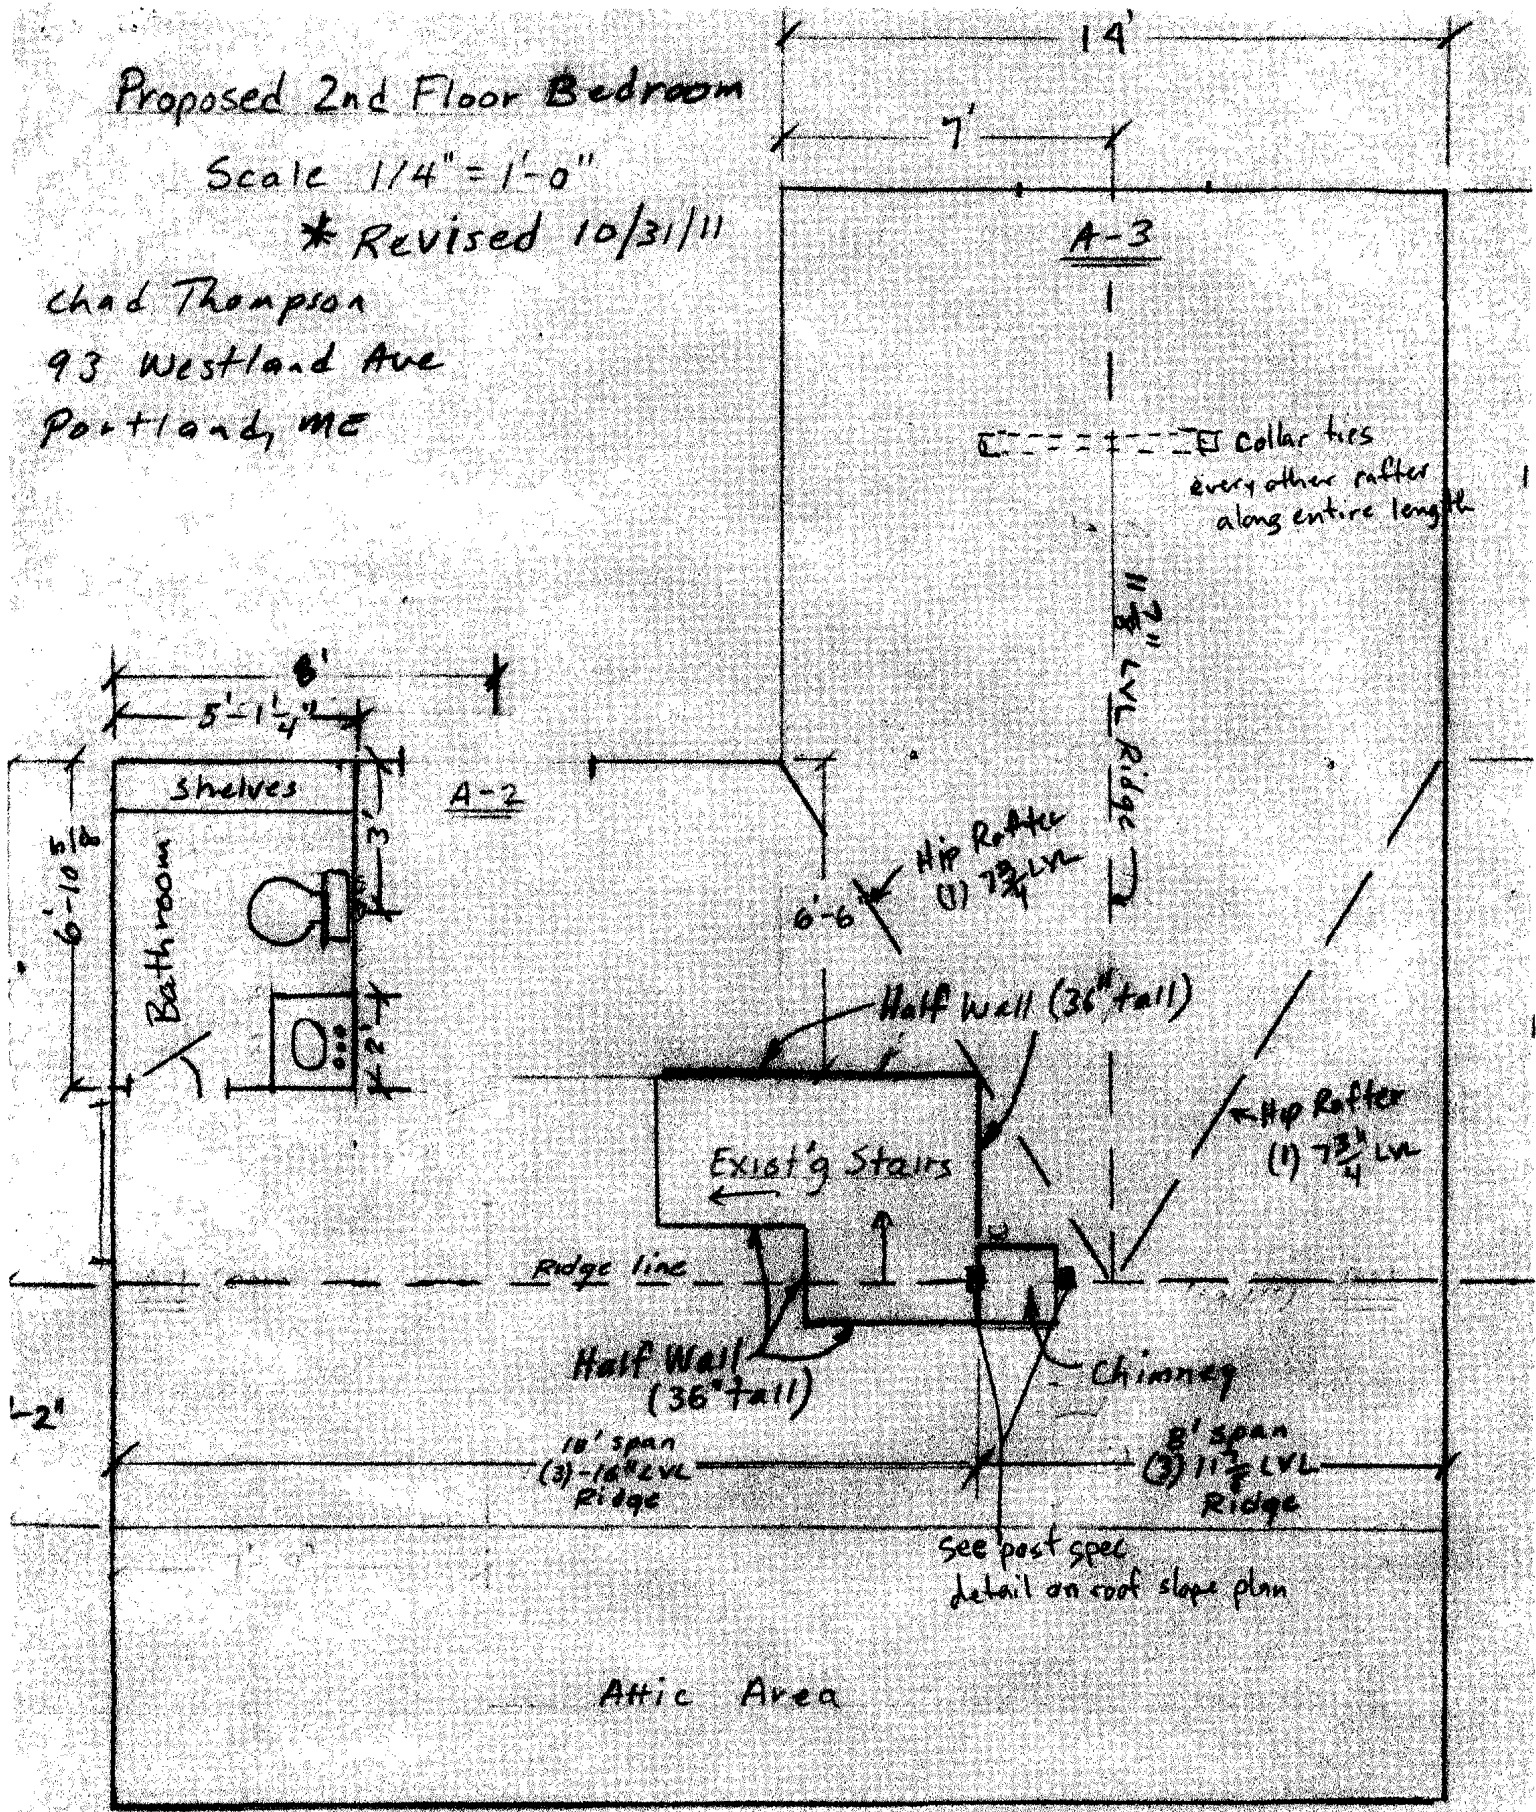 14'
7'
Proposed 2nd Floor Bedroom
Scale 1/4" = 1'-0"
* Revised 10/31/11
Chad Thompson
93 Westland Ave
Portland, ME
A-3
Collar ties
every other rafter
along entire length
11 7/8" LVL Ridge
8'
5'-1 1/4"
Shelves
A-2
3'
6'-10
Bathroom
2'
Hip Rafter
(1) 7 3/4 LVL
6'-6"
Half Wall (36" tall)
Hip Rafter
(1) 7 3/4" LVL
Exist'g Stairs
Ridge line
Half Wall
(36" tall)
Chimney
-2"
18' span
(3)-16" LVL
Ridge
8' span
(3) 11 7/8 LVL
Ridge
See post spec
detail on roof slope plan
Attic Area